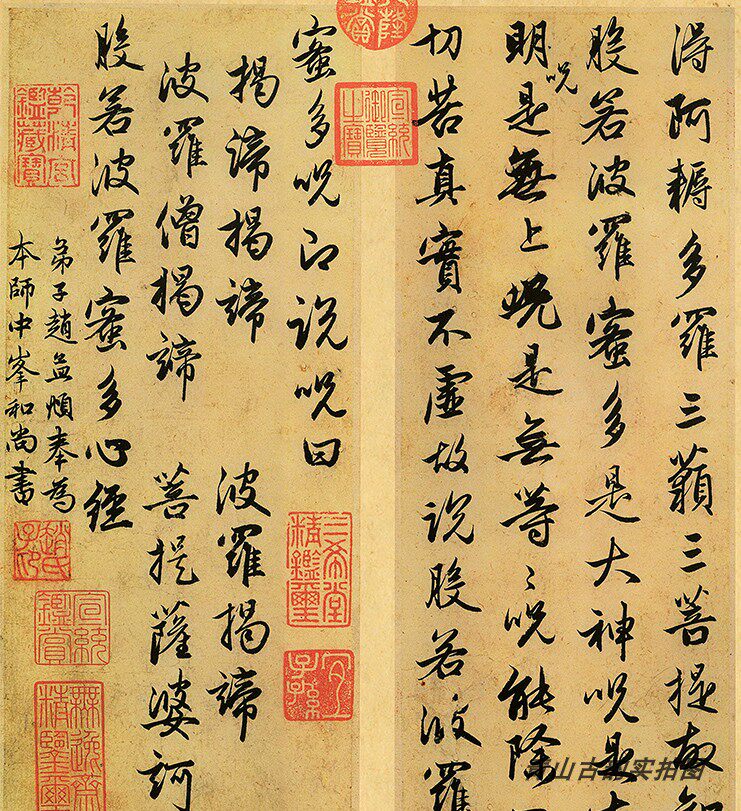 得阿耨多羅三藐三菩提故知
般若波羅蜜多是大神呪是大
明呪是無上呪是無等〻呪能除一
切苦真實不虛故說般若波羅
蜜多呪即說呪曰
揭諦揭諦 波羅揭諦
波羅僧揭諦 菩提薩婆訶
般若波羅蜜多心經
弟子趙孟頫奉為
本師中峯和尚書
宣統御覽之寶
乾清宮鑑藏寶
三希堂精鑑璽
宜子孫
趙氏子昂
宣統鑑賞
無逸齋精鑒璽
山古
实拍图